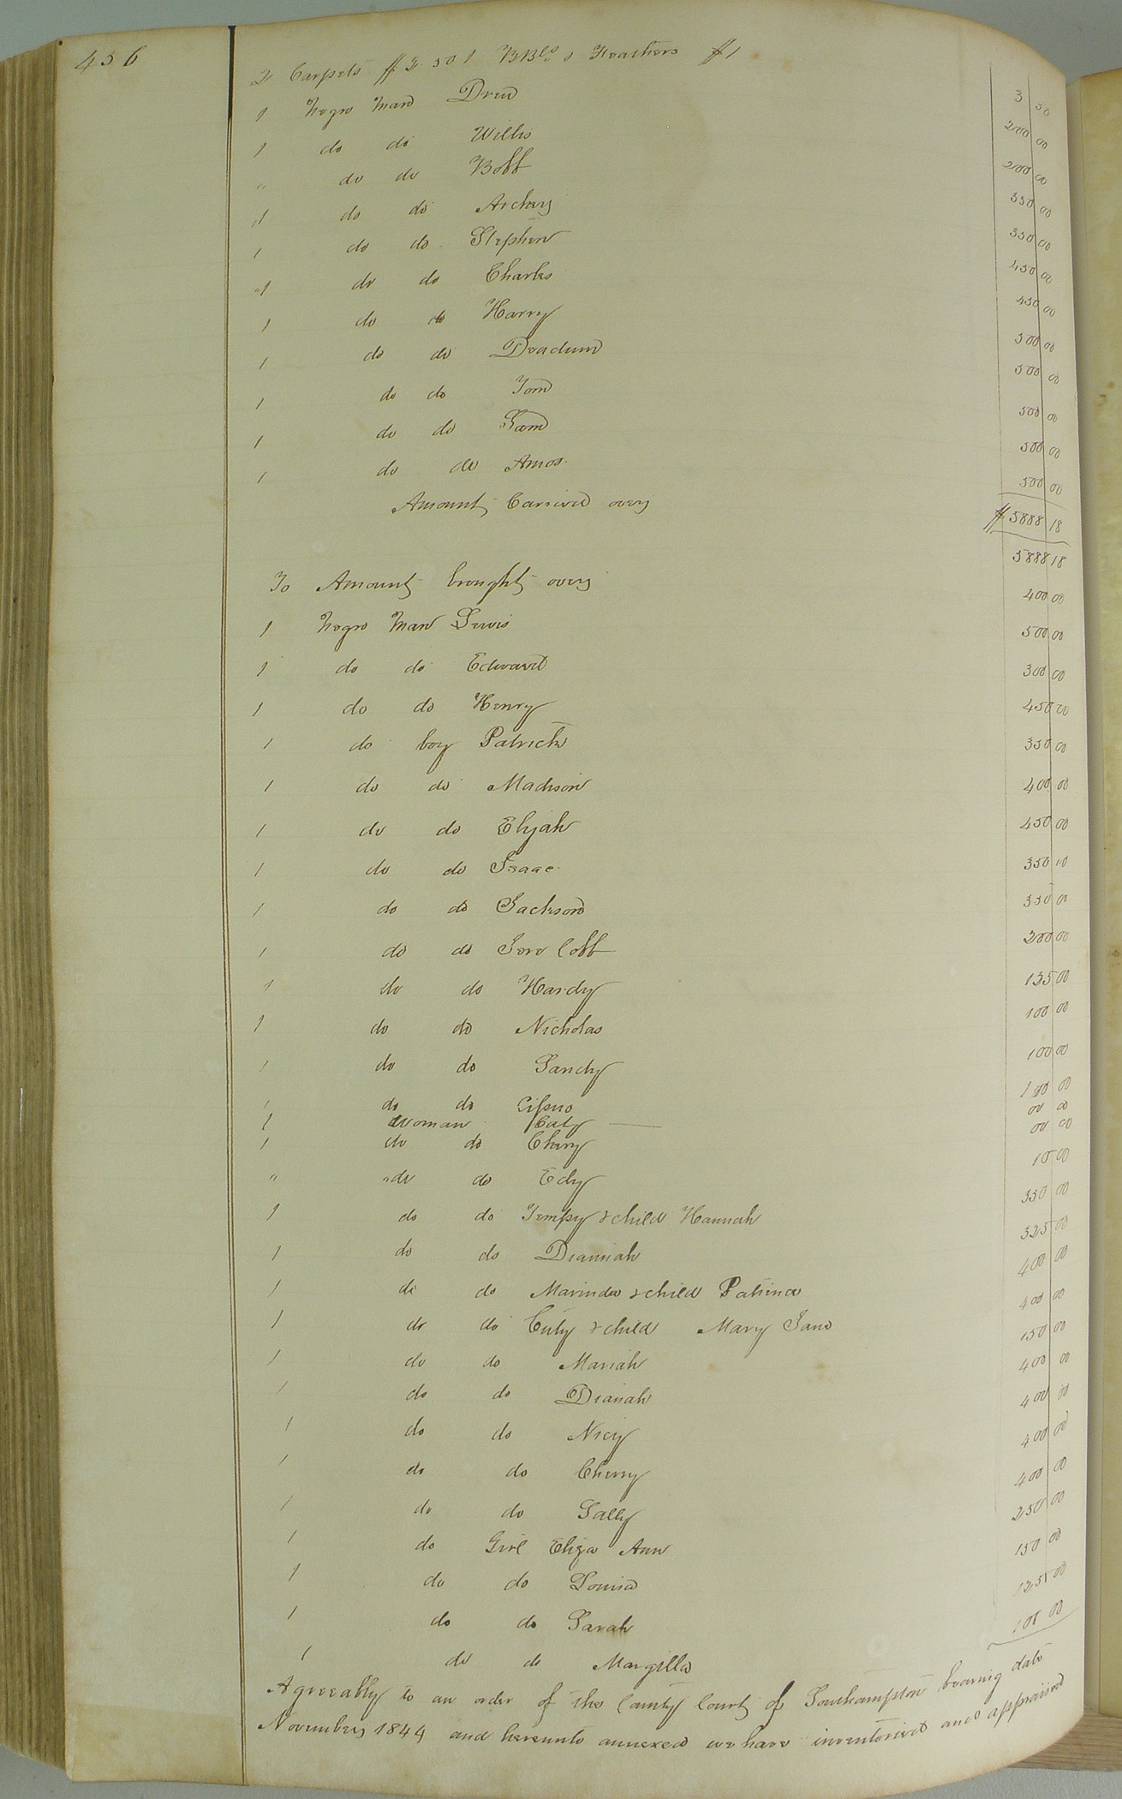 456
2 Carpets $2.50 1 BBls & Feathers $1 3 50
1 Negro Man Drew 200 00
1 do do Willis 200 00
" do do Bobb 350 00
1 do do Archey 350 00
1 do do Stephen 450 00
1 do do Charles 450 00
1 do do Harry 500 00
1 do do Deadum 500 00
1 do do Tom 500 00
1 do do Sam 500 00
1 do do Amos 500 00
Amount Carried over $5888 18
To Amount brought over 5888 18
1 Negro Man Lewis 400 00
1 do do Edward 500 00
1 do do Henry 300 00
1 do boy Patrick 450 00
1 do do Madison 350 00
1 do do Elijah 400 00
1 do do Isaac 450 00
1 do do Jackson 350 00
1 do do Jere Cobb 350 00
1 do do Hardy 200 00
1 do do Nicholas 135 00
1 do do Sandy 100 00
1 do do 100 00
1 Woman Caty 100 00
1 do do Chery 00 00
" do do Edy 00 00
1 do do Tempy & child Hannah 10 00
1 do do Diannah 350 00
1 do do Marinda & child Patience 325 00
1 do do Cuty & child Mary Jane 400 00
1 do do Mariah 400 00
1 do do Dianah 150 00
1 do do Nicy 400 00
1 do do Cherry 400 00
1 do do Sally 400 00
1 do Girl Eliza Ann 400 00
1 do do Louisa 250 00
1 do do Sarah 150 00
1 do do Margilla 125 00
100 00
Agreeably to an order of the County Court of Southampton bearing date
November 1844 and hereunto annexed we have inventoried and appraised